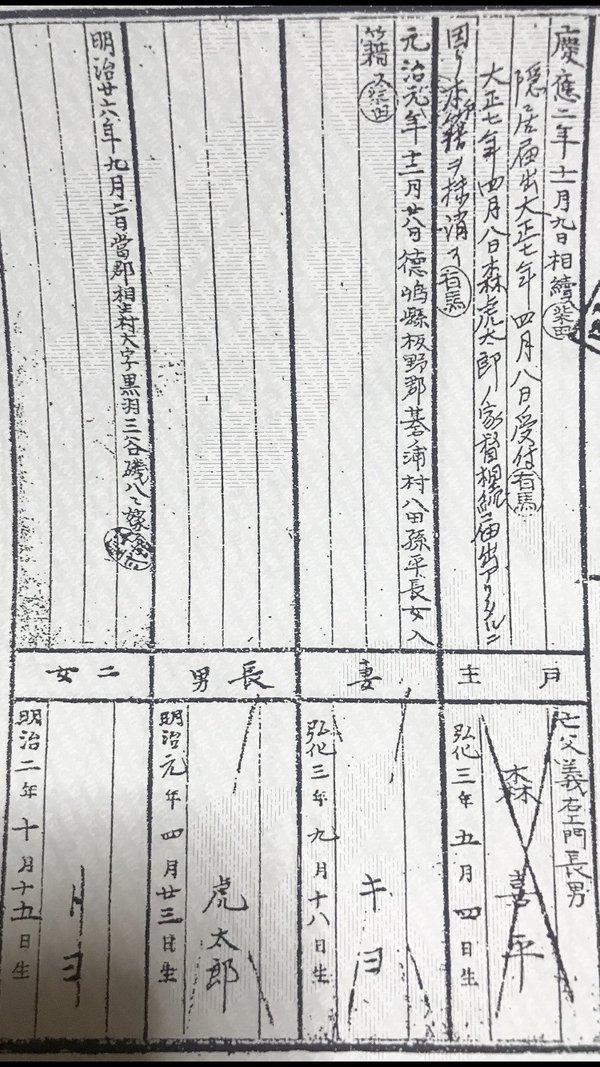 慶應二年十二月九日相續
柴田
隠居届出大正七年四月八日受付
有馬
大正七年四月八日森虎太郎ノ家督相続届出アリタルニ
因リ本籍ヲ抹消ス
有馬
戸主
亡父義右エ門長男
森喜平
弘化三年五月四日生
元治元年十二月廿八日徳島縣板野郡碁ノ浦村八田孫平長女入
籍ス
柴田
妻
キヨ
弘化三年九月十八日生
長男
虎太郎
明治元年四月廿三日生
明治廿六年九月二日當郡相生村大字黒羽三谷磯八ニ嫁ス
二女
トヨ
明治二年十月十五日生